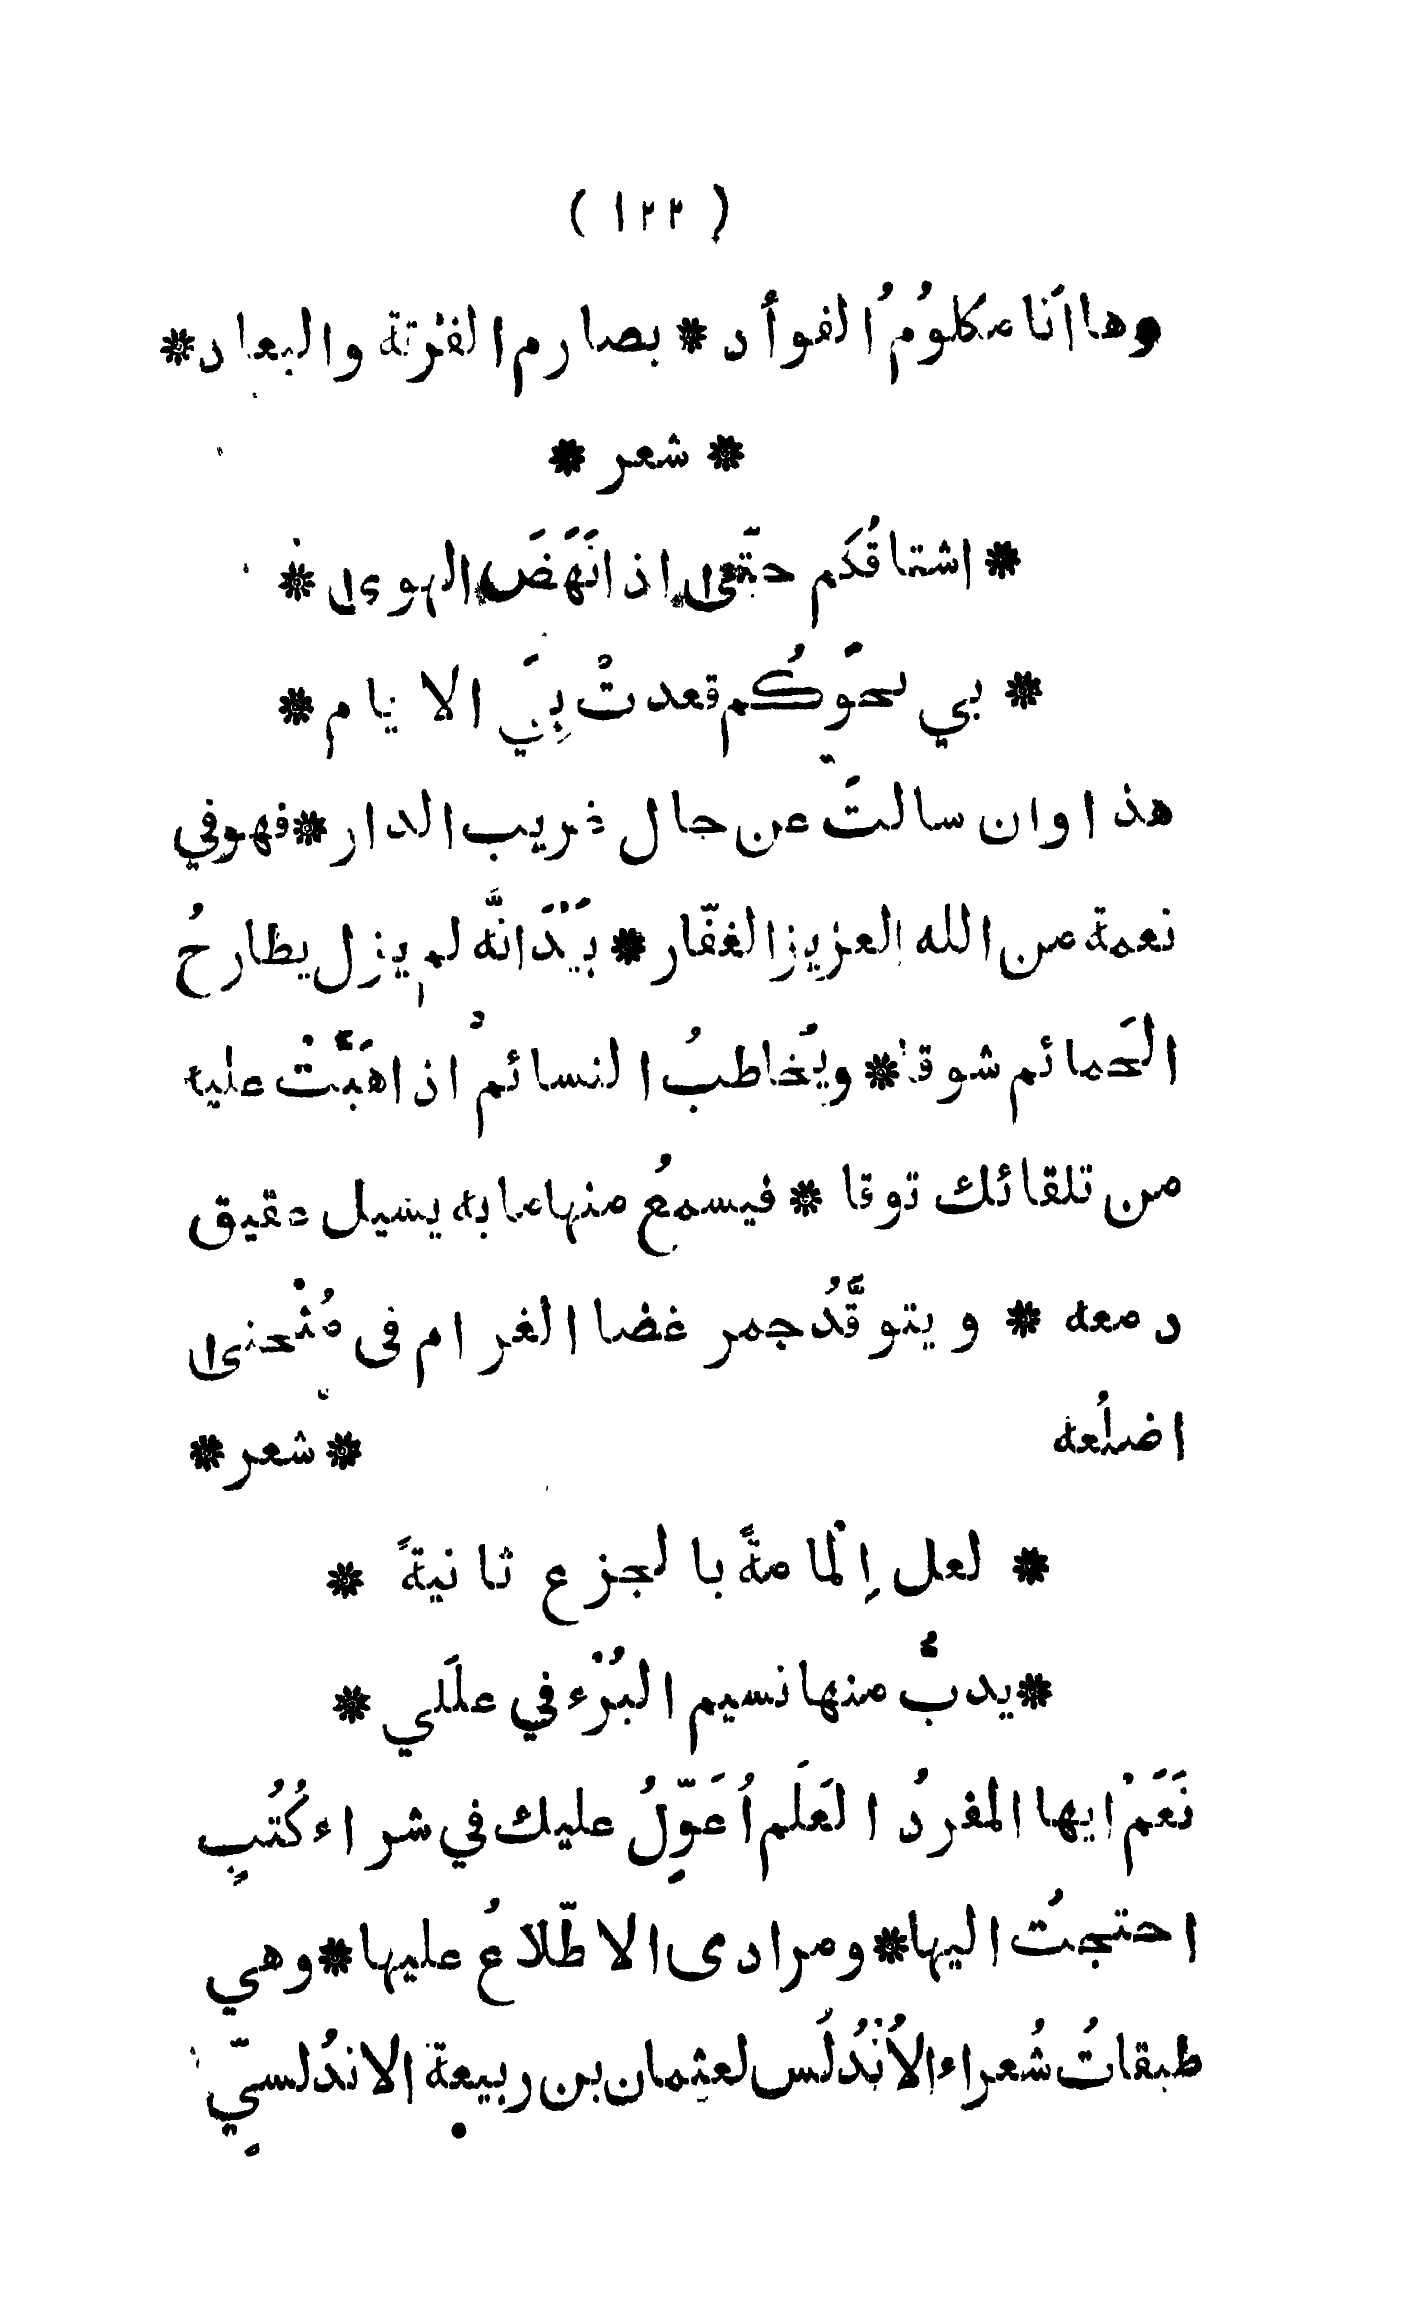 ( ١٢٢ )
وها اَنا مكلوُمُ الفوأد * بصارم الفرْقة والبعاد *
* شعر *
* اشتاقُكَم حتّىٰ اذ انَهَضَ الهوىٰ *
* بي نحوَكُم قعدتْ بِيَ الايام *
هذا وان سالتَ عن حال غريب الدار * فهو في
نعمة من الله العزيز الغفّار * بَيْدَ انَّه لم يزل يطارحُ
الحَمائم شوقا * ويُخاطبُ النسائمُ اذ اهَبَّتْ عليه
من تلقائك توقا * فيسمعُ منها ما به يسيل عقيق
دمعه * ويتوقَّدُ جمر غضا الغرام فى مُنْحنىٰ
اضلُعه * شعر *
* لعل اِلْمامةً بالجزع ثانيةً *
* يدبُّ منها نسيم البُرْء في علَلي *
نَعَمْ ايها المفردُ العَلَم اُعَوِّلُ عليك في شراء كُتُبٍ
احتجتُ اليها * ومرادى الاطّلاعُ عليها * وهي
طبقاتُ شُعراء الاُنْدُلُس لعثمان بن ربيعة الاندُلسيّ